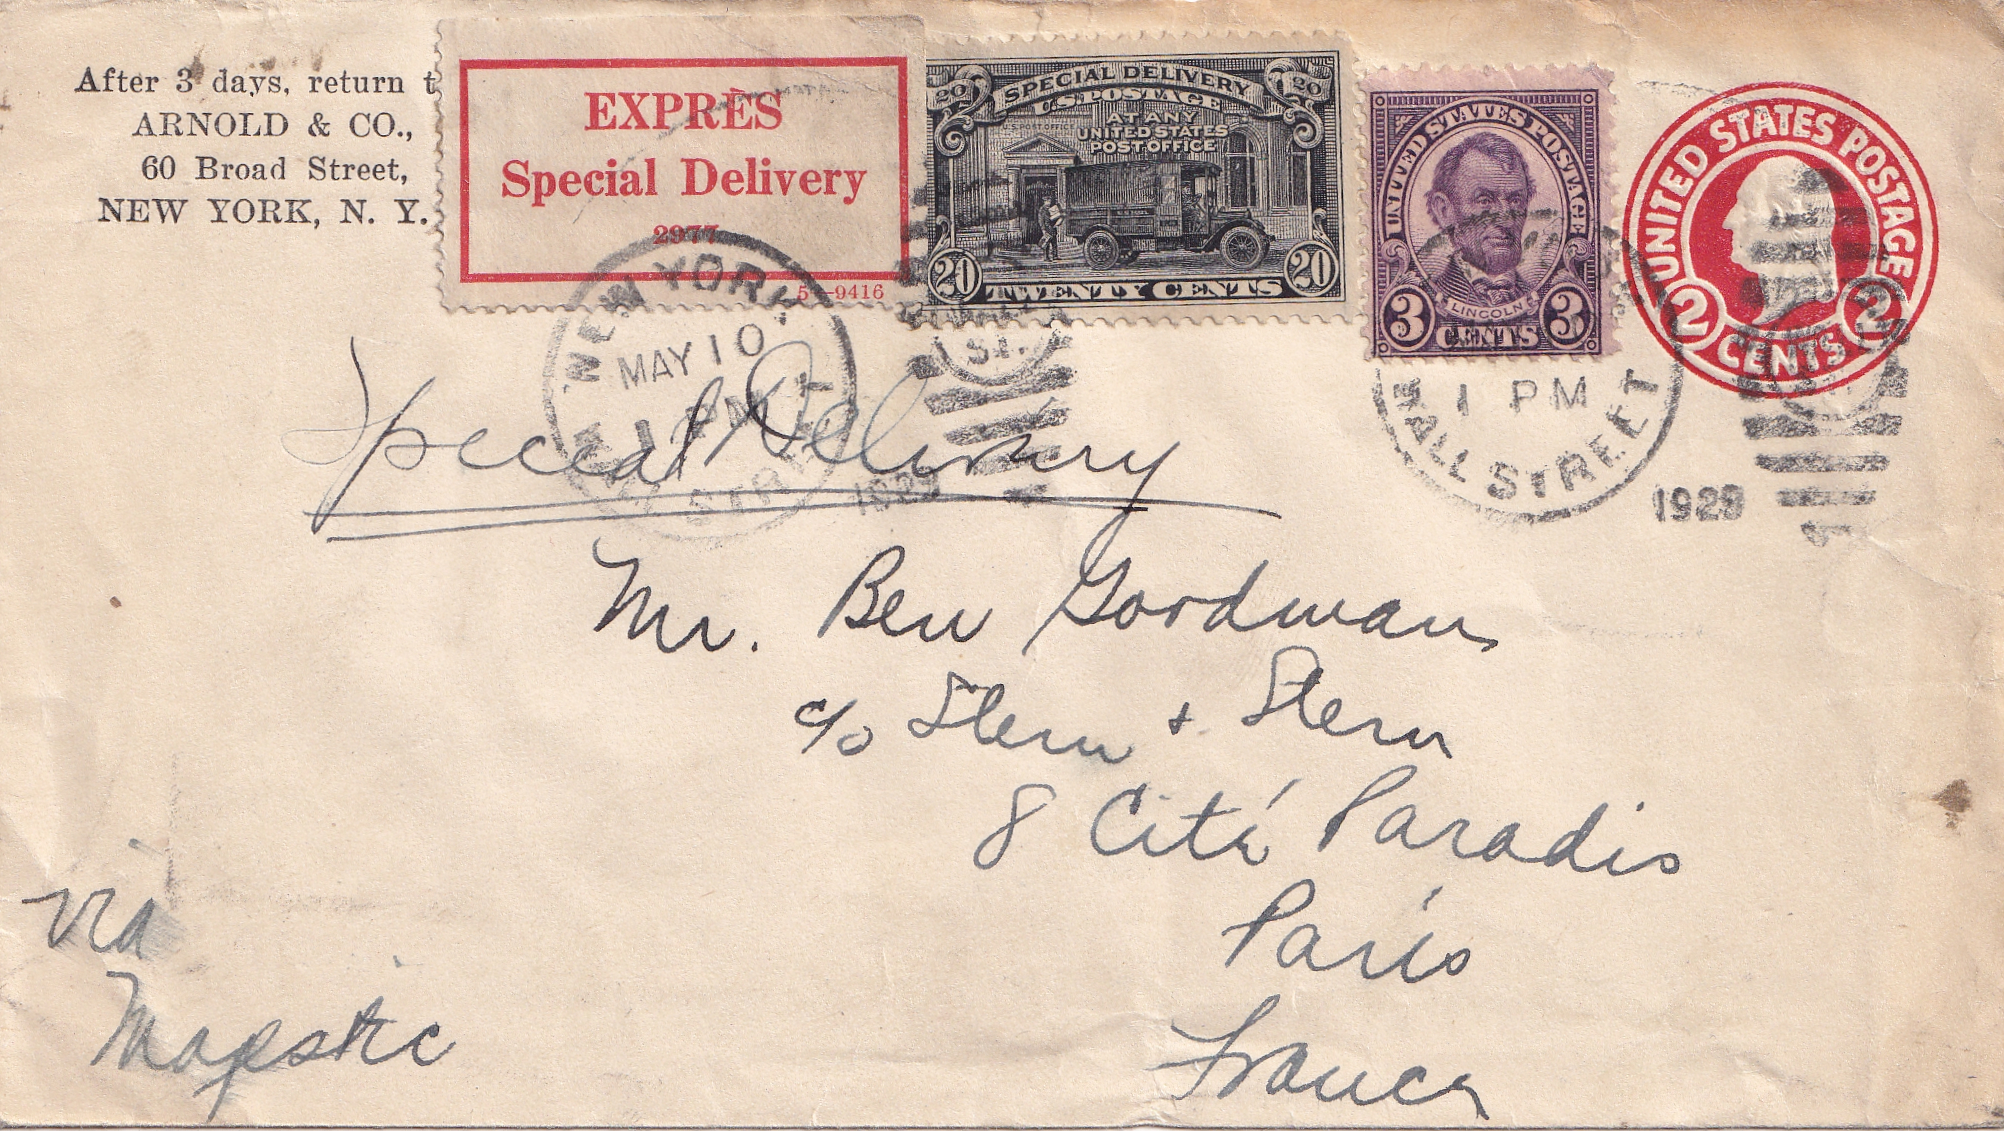 After 3 days, return t
ARNOLD & CO.,
60 Broad Street,
NEW YORK, N. Y.
EXPRÈS
Special Delivery
2977
5—9416
20 20
SPECIAL DELIVERY
U.S. POSTAGE
AT ANY
UNITED STATES
POST OFFICE
U.S. POST OFFICE
20 20
TWENTY CENTS
UNITED STATES POSTAGE
LINCOLN
3 3
CENTS
UNITED STATES POSTAGE
2 2
CENTS
NEW YORK
MAY 10
1 PM
WALL STREET
ST.
1929
1 PM
WALL STREET
1929
Special Delivery
Mr. Ben Goodman
c/o Stern + Stern
8 Cité Paradis
Paris
France
Via
Majestic